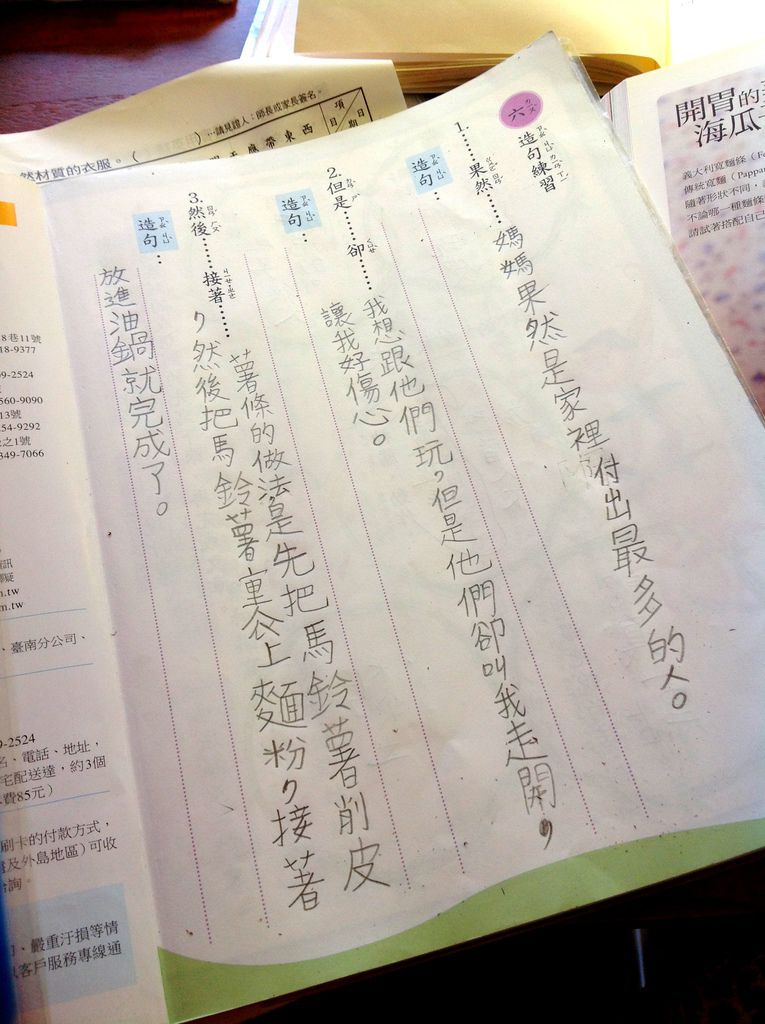 六
造句練習
1.……果然……
造句…
媽媽果然是家裡付出最多的人。
2.但是……卻……
造句…
我想跟他們玩,但是他們卻叫我走開,
讓我好傷心。
3.然後……接著……
造句…
薯條的做法是先把馬鈴薯削皮
,然後把馬鈴薯裹上麵粉,接著
放進油鍋就完成了。
…請見證人:師長或家長簽名。
項目
日期
然材質的衣服。(
開胃的
海瓜
義大利寬麵條(Fe
傳統寬麵(Pappar
隨著形狀不同,
不論哪一種麵條
請試著搭配自己
8巷11號
18-9377
9-2524
560-9090
13號
54-9292
之1號
349-7066
訊
.tw
m.tw
、臺南分公司、
9-2524
名、電話、地址,
宅配送達,約3個
費85元)
刷卡的付款方式,
及外島地區)可收
洽詢。
、嚴重汙損等情
客戶服務專線通